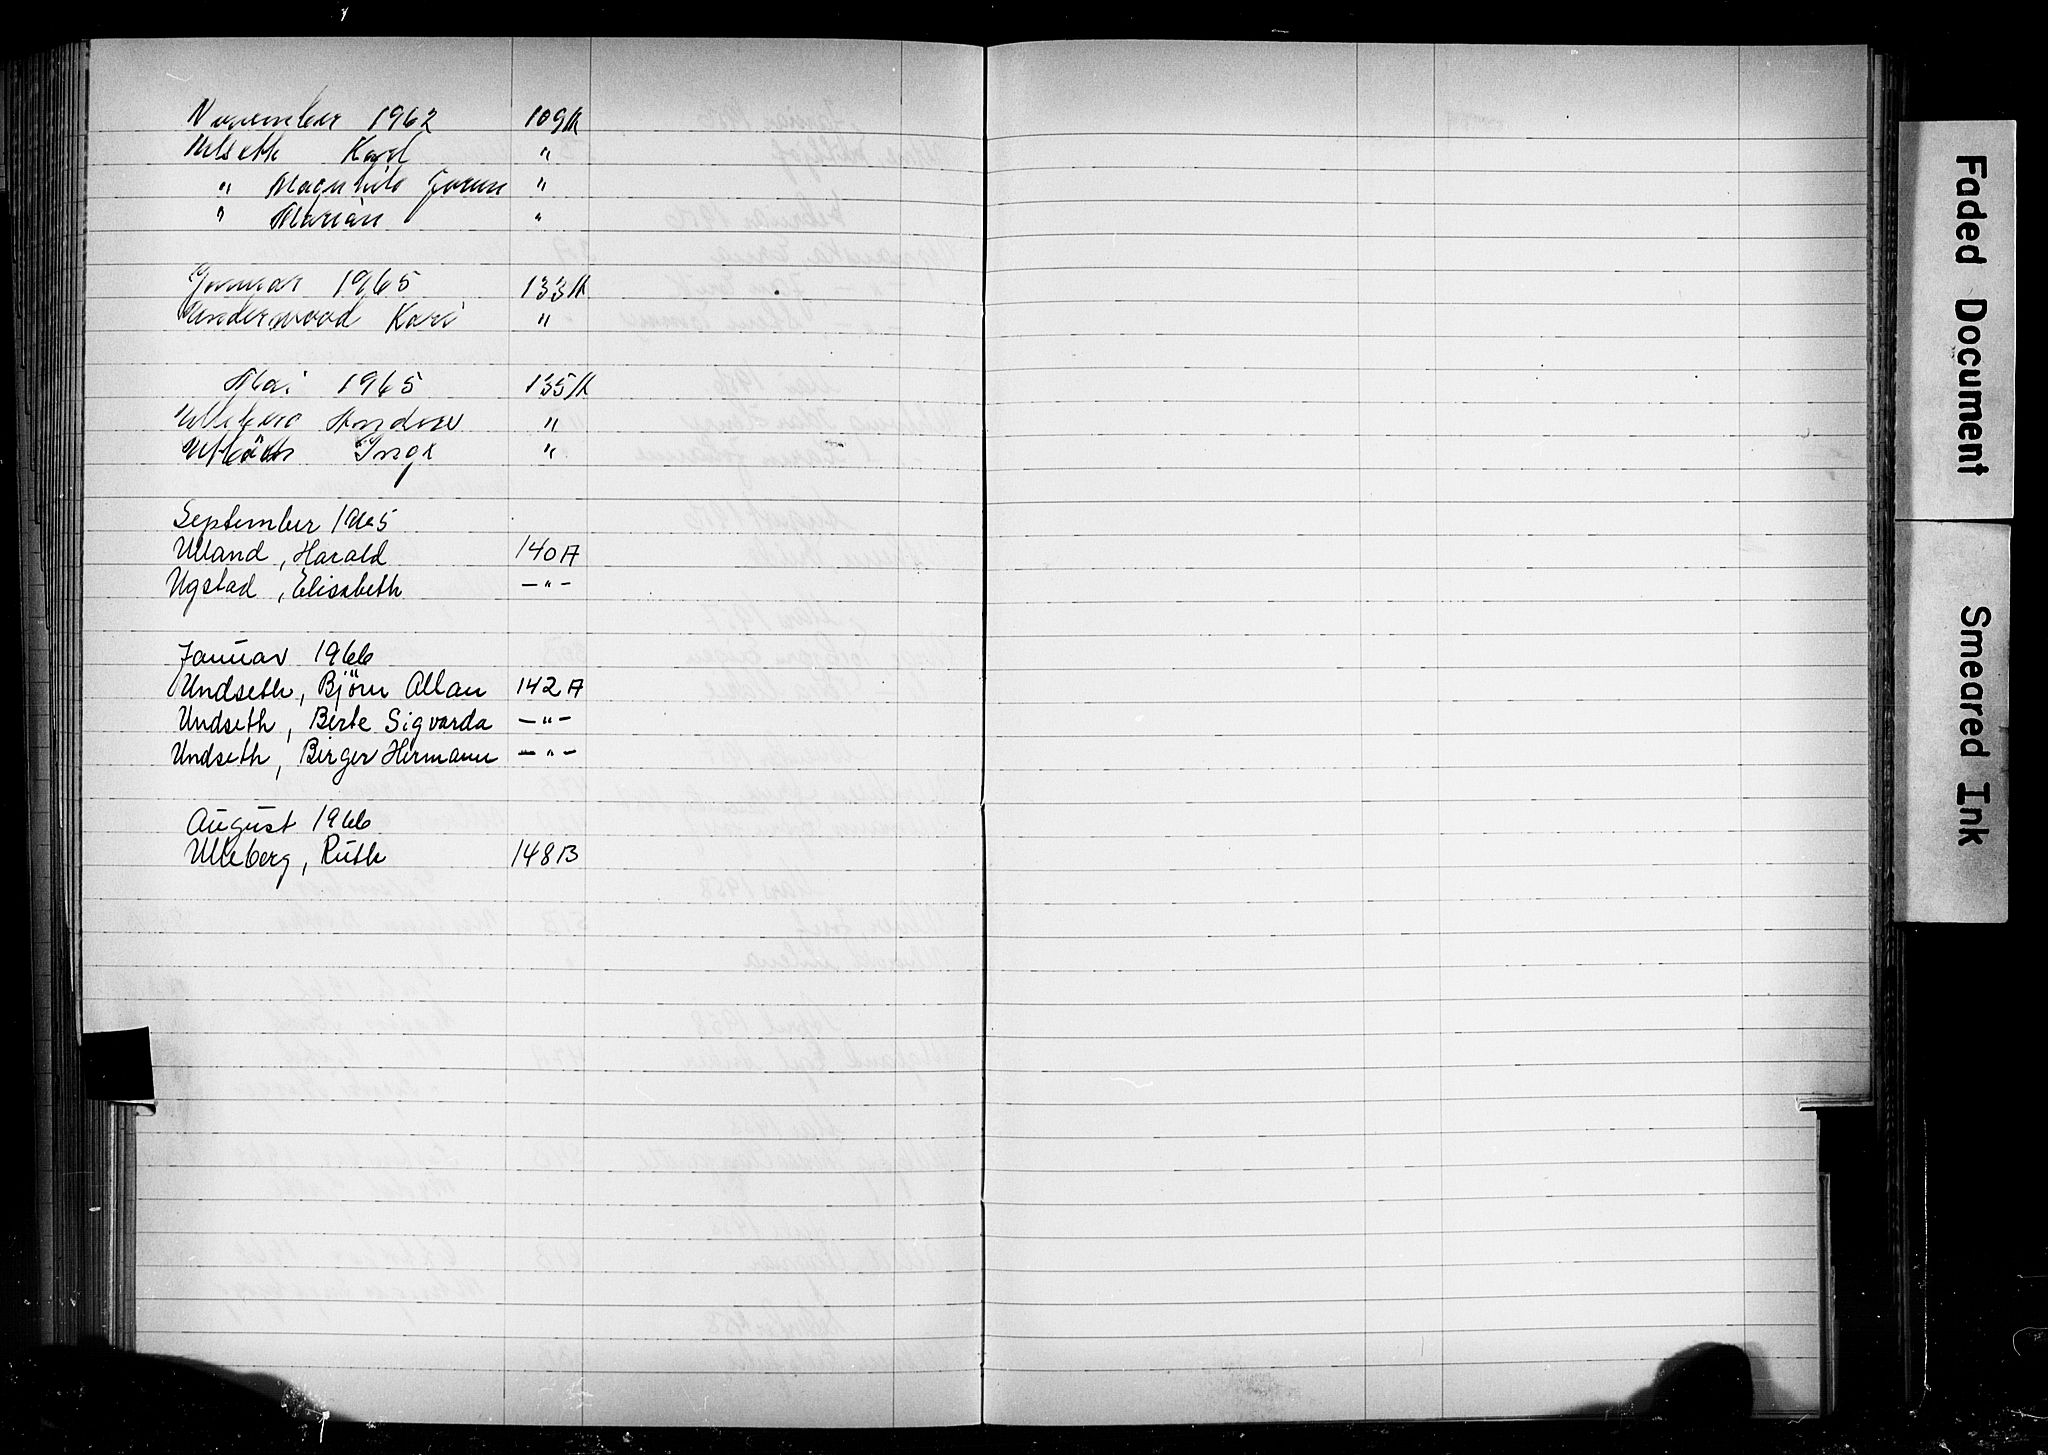 November 1962 109A
Ulseth Karl "
" Magnhild Jorun "
" Marian "
Januar 1965 133A
Underwood Kari "
Mai 1965 135A
Ulleberg Andrew "
Inga "
September 1965
Ulland, Harald 140A
Ugstad, Elisabeth —"—
Januar 1966
Undseth, Bjørn Allan 142A
Undseth, Berte Sigvarda —"—
Undseth, Birger Hermann —"—
August 1966
Ulleberg, Ruth 148B
Faded Document
Smeared Ink